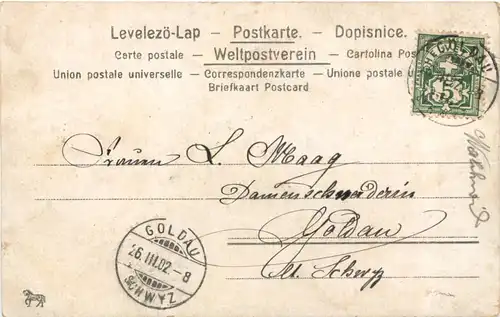 Levelezö-Lap – Postkarte. – Dopisnice.
Carte postale – Weltpostverein – Cartolina Post
Union postale universelle – Correspondenzkarte – Unione postale u
Briefkaart Postcard
GOLDAU
5
Frauen L. Maag
Damenschneiderin
Goldau
Kt. Schwyz
GOLDAU
26.III.02.-8
SCHWYZ